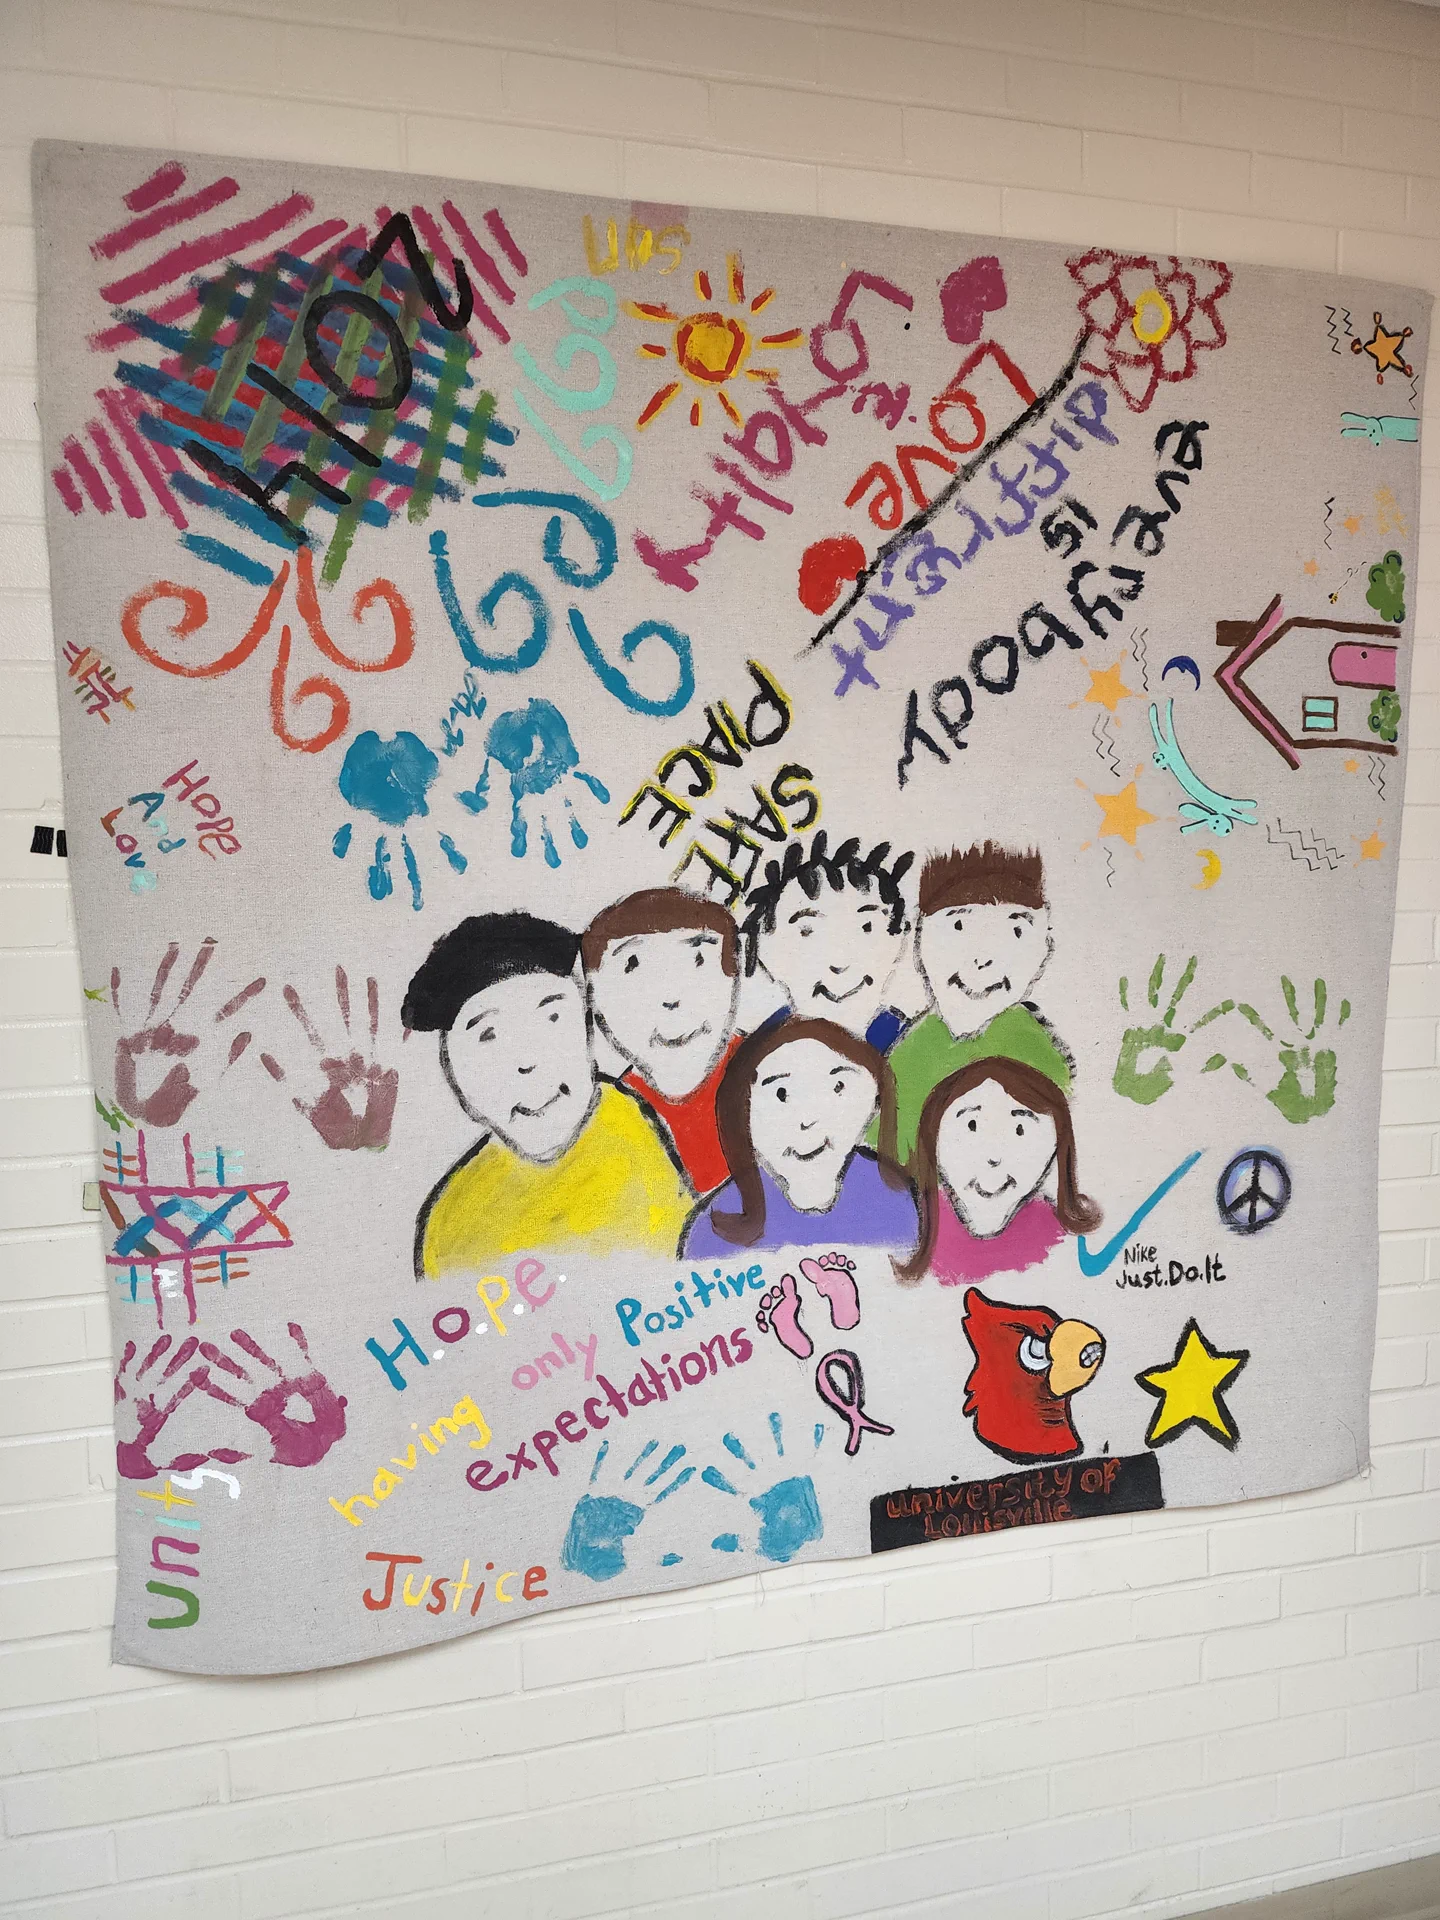 2014
Loyalty
is
Love
Everybody
is
different
SAFE
PLACE
Hope
And
Love
H.o.p.e.
having only Positive
expectations
Nike
Just.Do.It
university of
Louisville
Unity
Justice